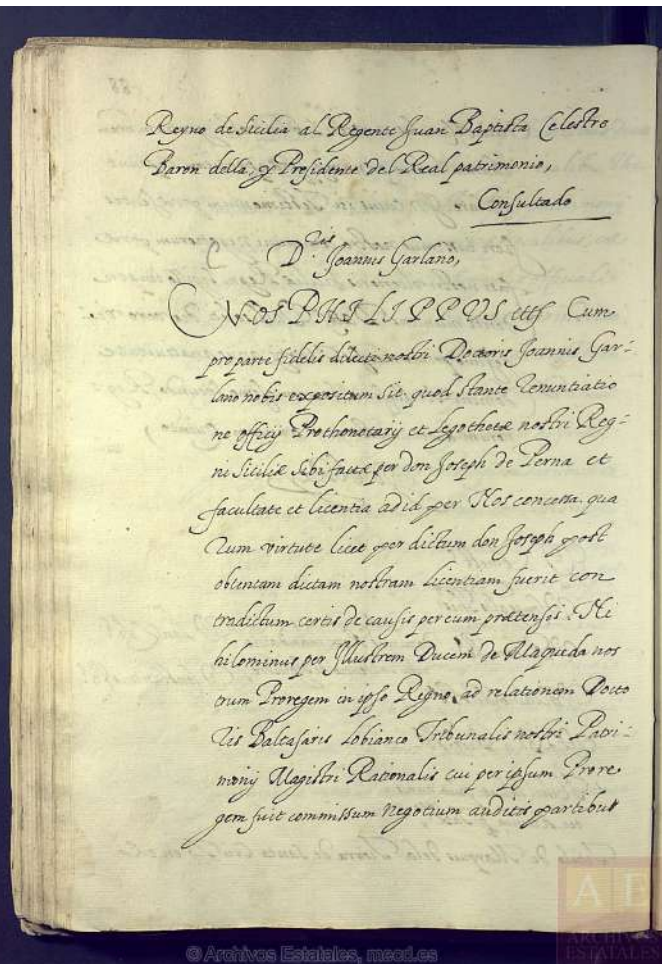 Reyno de Sicilia al Regente Juan Baptista Celestre
Baron della, y Presidente del Real patrimonio,
Consultado
D.ris Joannis Garlano,
NOS PHILIPPUS etc Cum
pro parte fidelis dilecti nostri Doctoris Joannis Gar=
lano nobis expositum sit quod stante renuntiatio
ne officij Prothonotarij et Logothetæ nostri Reg=
ni Siciliæ sibi factæ per don Joseph de Perna et
facultate et licentia ad id per Nos concessa. qua
rum virtute licet per dictum don Joseph post
obtentam dictam nostram licentiam fuerit con
tradictum certis de causis per eum prætensis: Ni
hilominus per Illustrem Ducem de Maqueda nos
trum Proregem in ipso Regno, ad relationem Docto
ris Baltasaris Lobianco Tribunalis nostri Patri=
monij Magistri Rationalis cui per ipsum Prore
gem fuit commissum negotium auditis partibus
A E
ARCHIVOS
ESTATALES
© Archivos Estatales, mecd.es